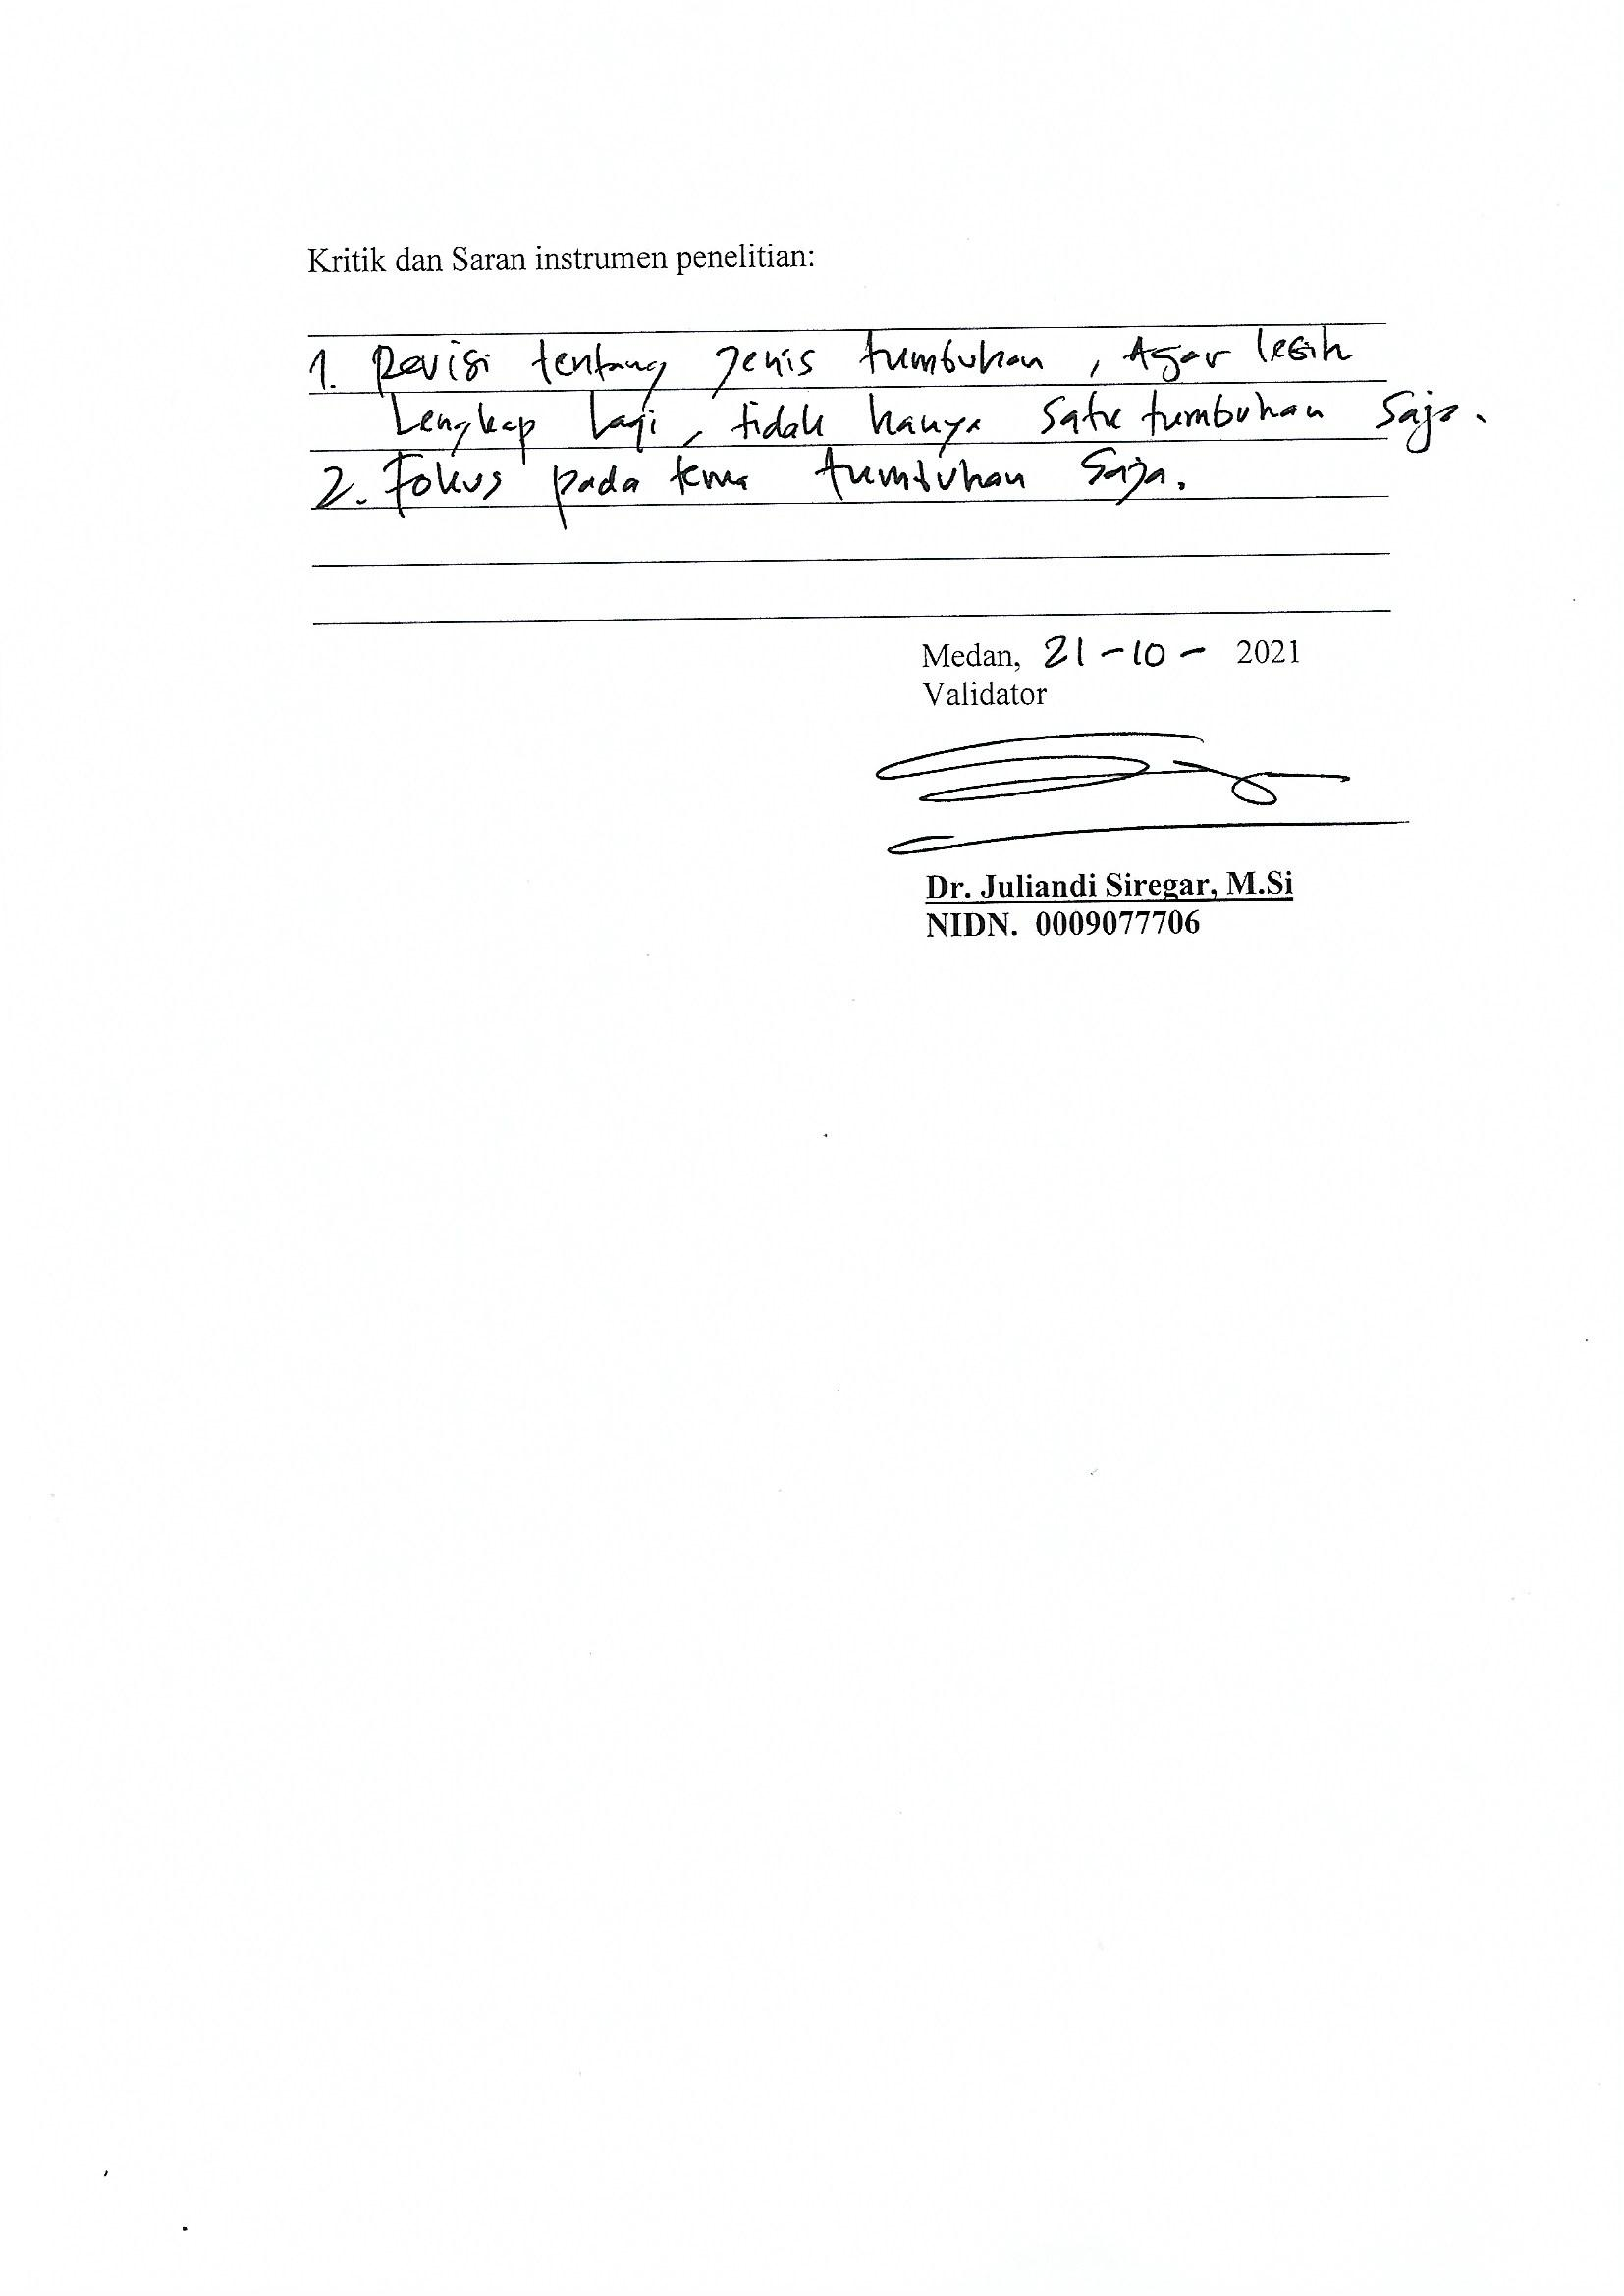 Kritik dan Saran instrumen penelitian:
1. Revisi tentang Jenis tumbuhan, Agar lebih
Lengkap lagi, tidak hanya satu tumbuhan saja.
2. Fokus pada tema tumbuhan saja.
Medan, 21-10- 2021
Validator
Dr. Juliandi Siregar, M.Si
NIDN. 0009077706